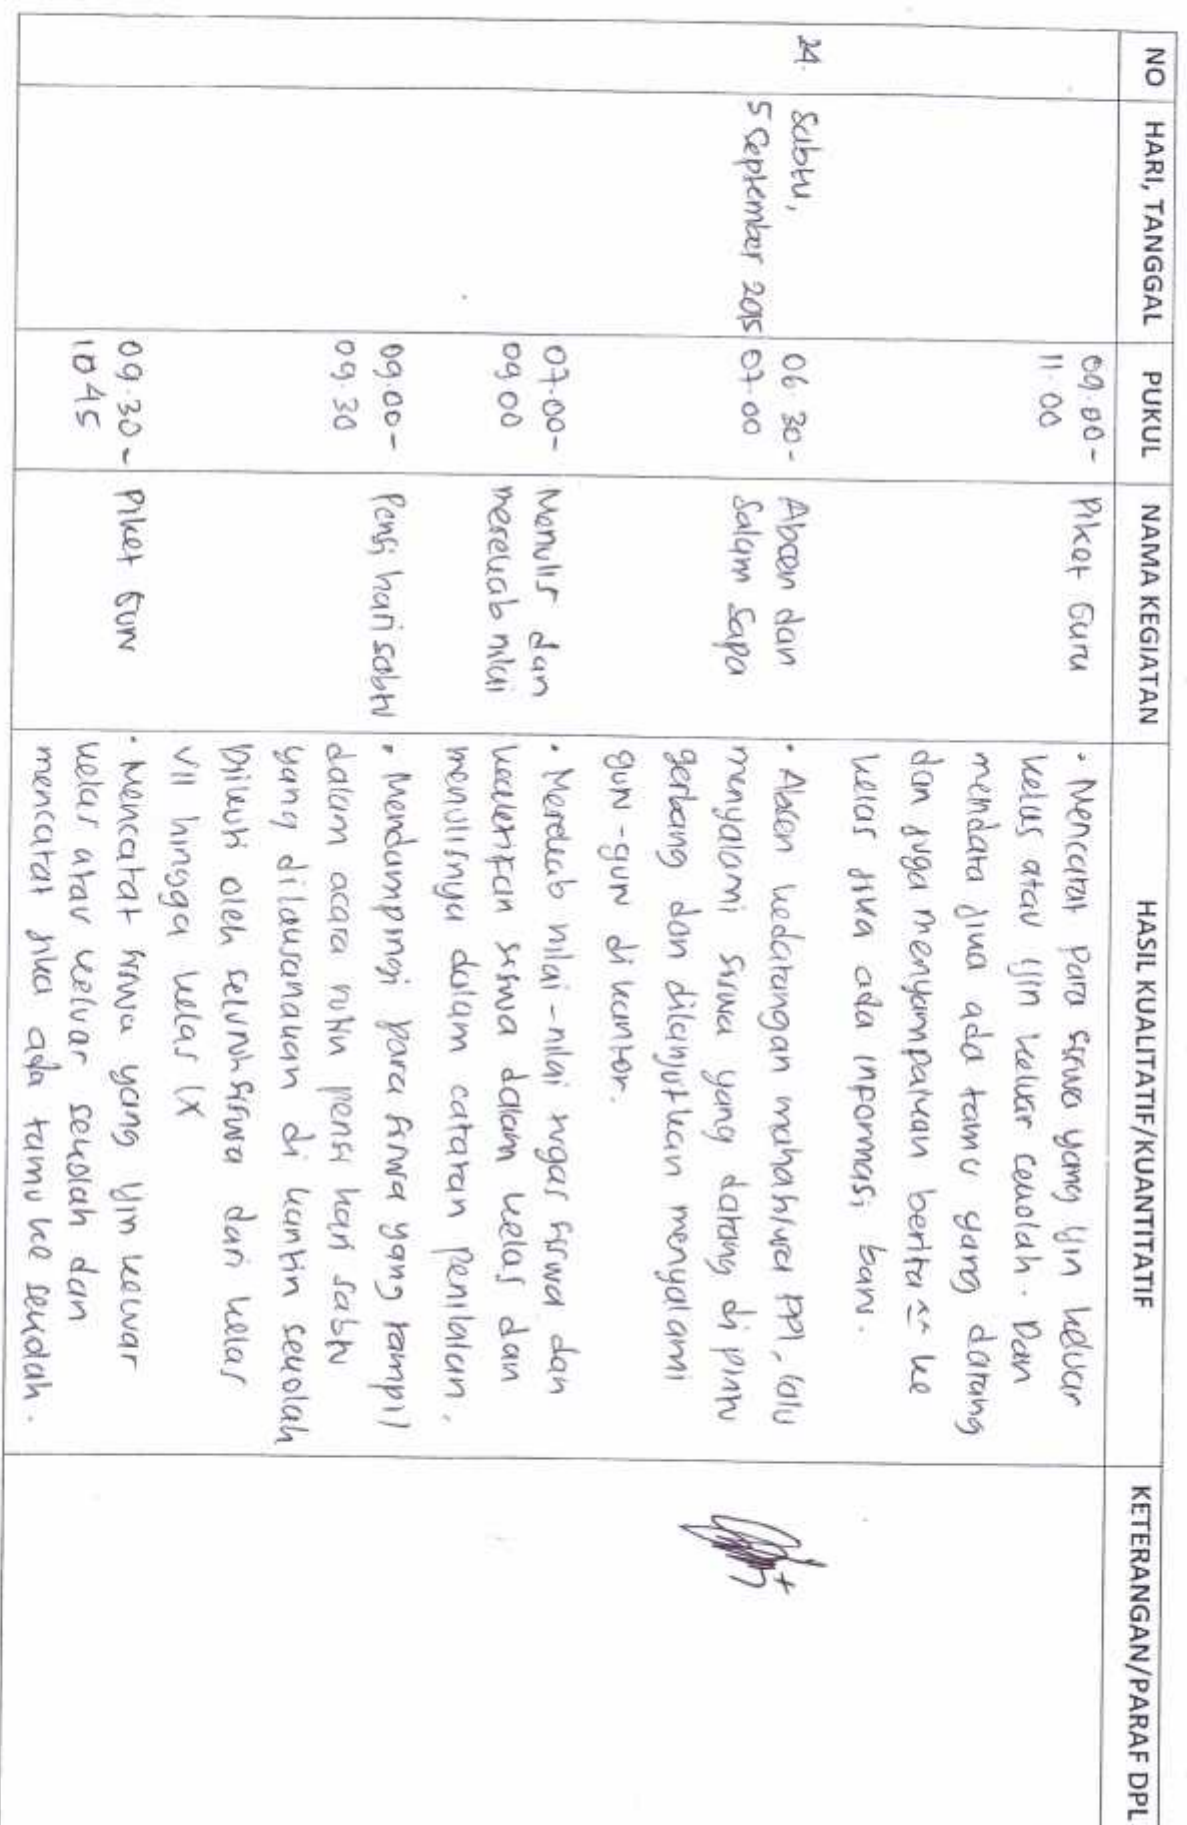 NO HARI, TANGGAL PUKUL NAMA KEGIATAN HASIL KUALITATIF/KUANTITATIF KETERANGAN/PARAF DPL
09.00-
11.00
Piket Guru
• Mencatat para siswa yang ijin keluar
kelas atau ijin keluar ceuolah. Dan
mendata jika ada tamu yang datang
dan juga menyampaikan berita ^^ ke
kelas jika ada informasi baru.
24.
Sabtu,
5 September 2015
06.30-
07.00
Absen dan
Salam Sapa
• Absen kedatangan mahahiswa PPl, lalu
menyalami siswa yang datang di pintu
gerbang dan dilanjutkan menyalami
guru-guru di kantor.
07.00-
09.00
Menulis dan
merekab nilai
• Merekab nilai-nilai tugas siswa dan
keaktifan siswa dalam kelas dan
menulisnya dalam catatan penilaian.
09.00-
09.30
Pensi hari sabtu
• Mendampingi para siswa yang tampil
dalam acara rutin pensi hari sabtu
yang dilaksanakan di kantin sekolah
Diikuti oleh seluruh siswa dari kelas
VII hingga kelas IX
09.30-
10 45
Piket Guru
• Mencatat siswa yang ijin keluar
kelas atau keluar sekolah dan
mencatat jika ada tamu ke sekolah.